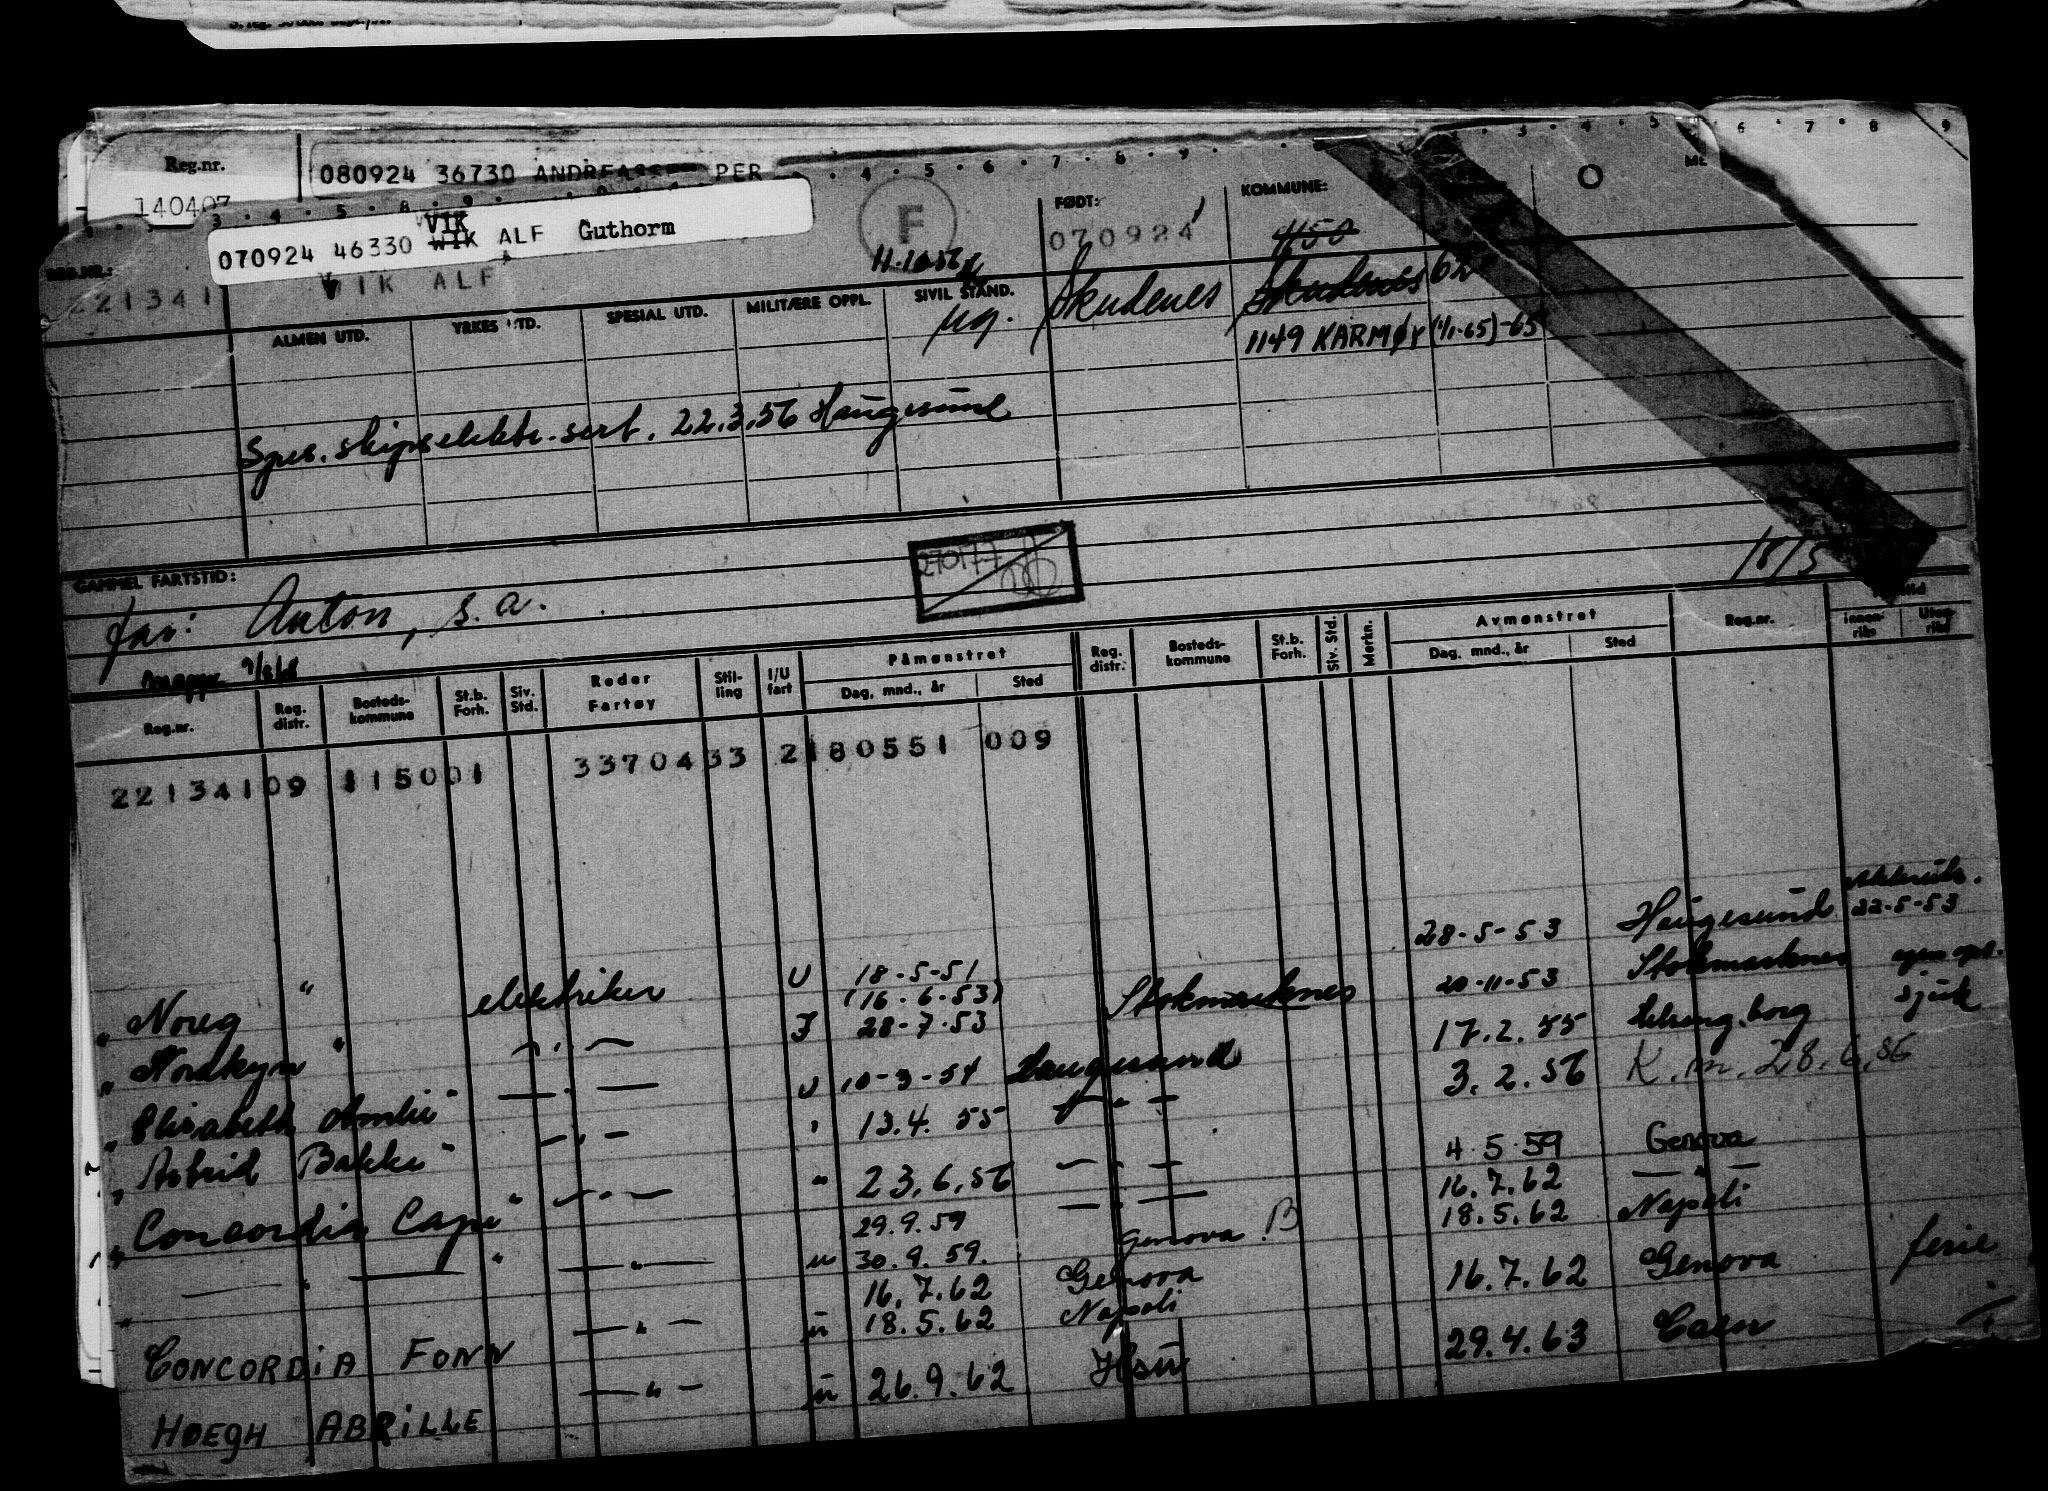 Reg.nr.
140407
080924 36730 ANDREASSEN PER
070924 46330 WIK VIK ALF Guthorm
F
FØDT:
070924
KOMMUNE:
4150
REG.NR.:
221341
VIK ALF
11.10.56
ALMEN UTD. YRKES UTD. SPESIAL UTD. MILITÆRE OPPL. SIVIL STAND.
ug. Skudenes Skudenes 62
1149 KARMØY (1/1-65)-65
Spes. skipselektr.sert. 22.3.56 Haugesund
270177
18/5
GAMMEL FARTSTID:
far: Anton, s.a.
Mappe
Reg.nr. Reg. distr. Bosteds-kommune St.b. Forh. Siv. Std. Reder Fartøy Stil-ling I/U fart Påmønstret Dag, mnd., år Sted Reg. distr. Bosteds-kommune St.b. Forh. Siv. Std. Merkn. Avmønstret Dag, mnd., år Sted Reg.nr. innen-riks Uten-riks
22134109 115001 3370433 2180551 009
" Noreg " elektriker U 18-5-51 28-5-53 Haugesund 22-5-53
(16.6.53)
" Nordkyn " — " — I 28-7-53 Stokmarknes 20-11-53 Stokmarknes egen ops.
" Elisabeth Amlie " — " — U 10-3-54 Haugesund 17.2.55 sjuk
" Astrid Bakke " — " — " 13.4.55 — " — 3.2.56 K.m. 28.6.56
" Concordia Cape " — " — " 23.6.56 — " — 4.5.59 Genova
29.9.59 — " — 16.7.62 — " —
" — " — " — " — u 30.9.59. Genova B 18.5.62 Napoli
16.7.62 Genova
" CONCORDIA FONN — " — u 18.5.62 Napoli 16.7.62 Genova ferie
HØEGH ABRILLE — " — u 26.9.62 Hsu 29.4.63 Caen